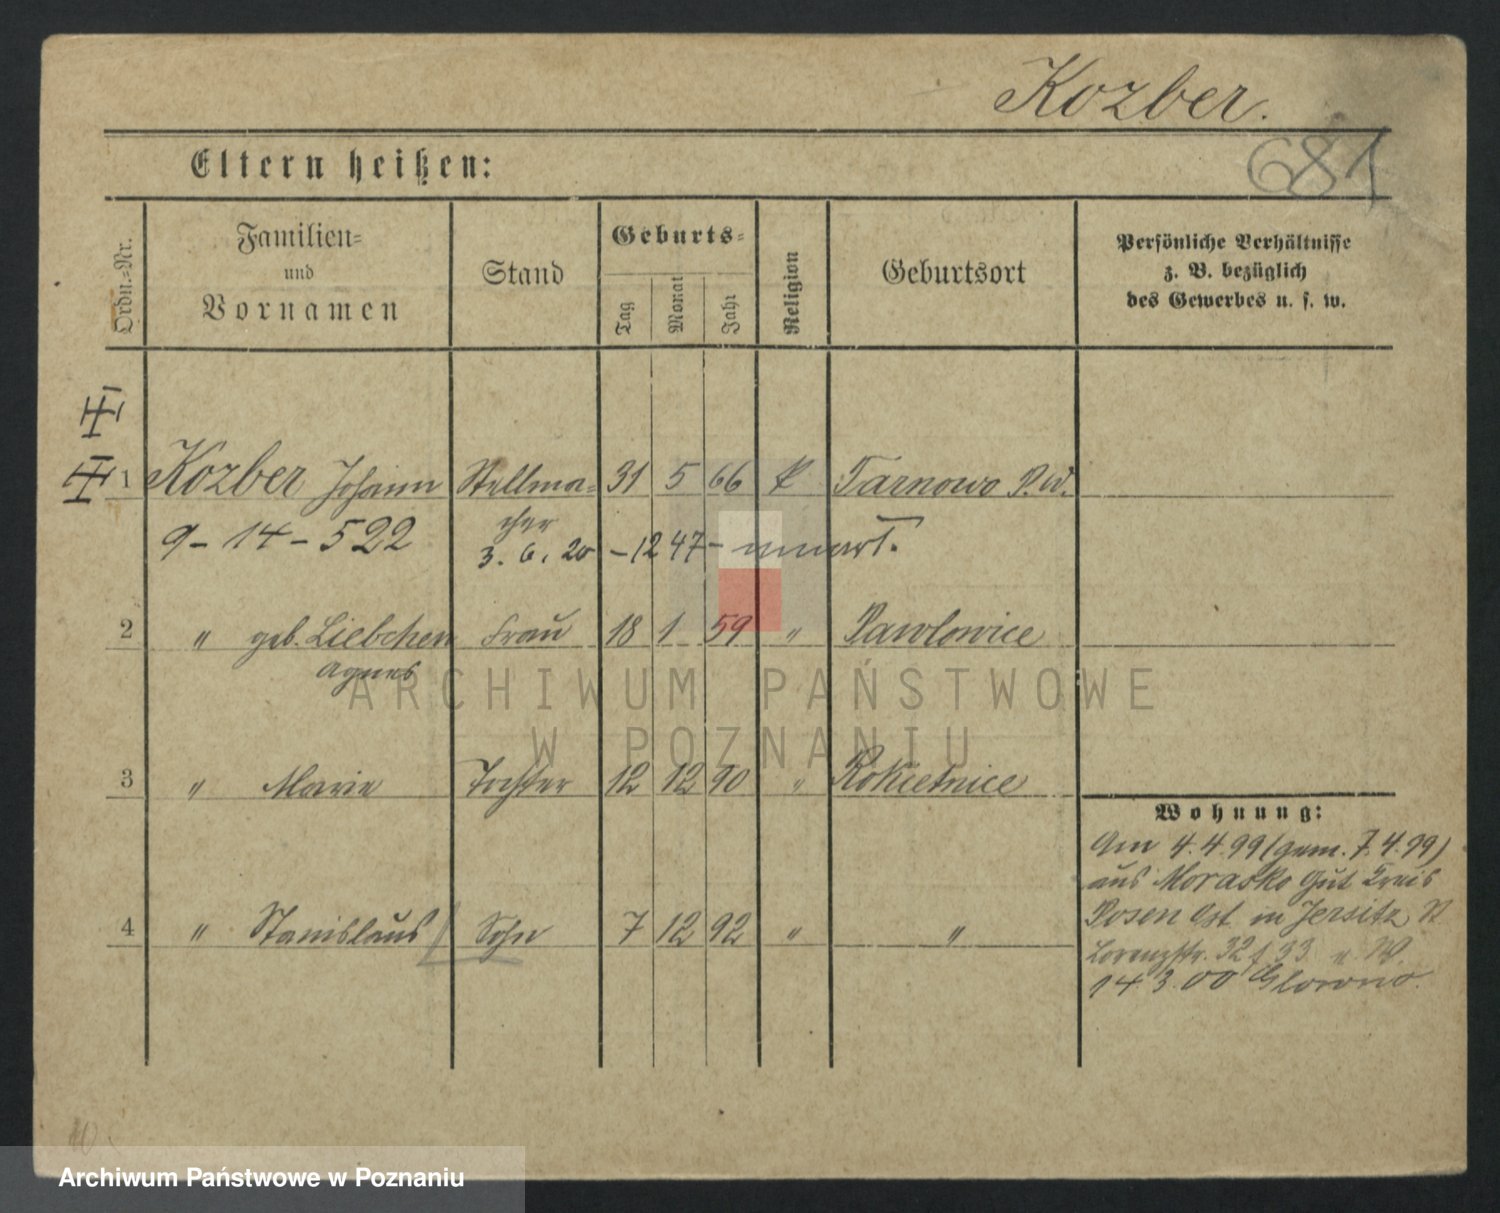 Kozber.
681
Eltern heißen:
Ordn.-Nr.
Familien-
und
Vornamen
Stand
Geburts-
Tag
Monat
Jahr
Religion
Geburtsort
Persönliche Verhältnisse
z. B. bezüglich
des Gewerbes u. s. w.
1 Kozber Johann Stellma- 31 5 66 k Tarnowo P.W.
cher
9-14-522 3. 6. 20 -12 47-
2 " geb. Liebchen Frau 18 1 59 " Pawlowice
Agnes
3 " Marie Tochter 12 12 90 " Rokietnice
4 " Stanislaus Sohn 7 12 92 " "
Wohnung:
Am 4.4.99 (gem. 7.4.99)
aus Morasko Gut Kreis
Posen Ost in Jersitz St
Lorenzstr. 32/33
14.3.00 Glowno.
ARCHIWUM PAŃSTWOWE
W POZNANIU
Archiwum Państwowe w Poznaniu